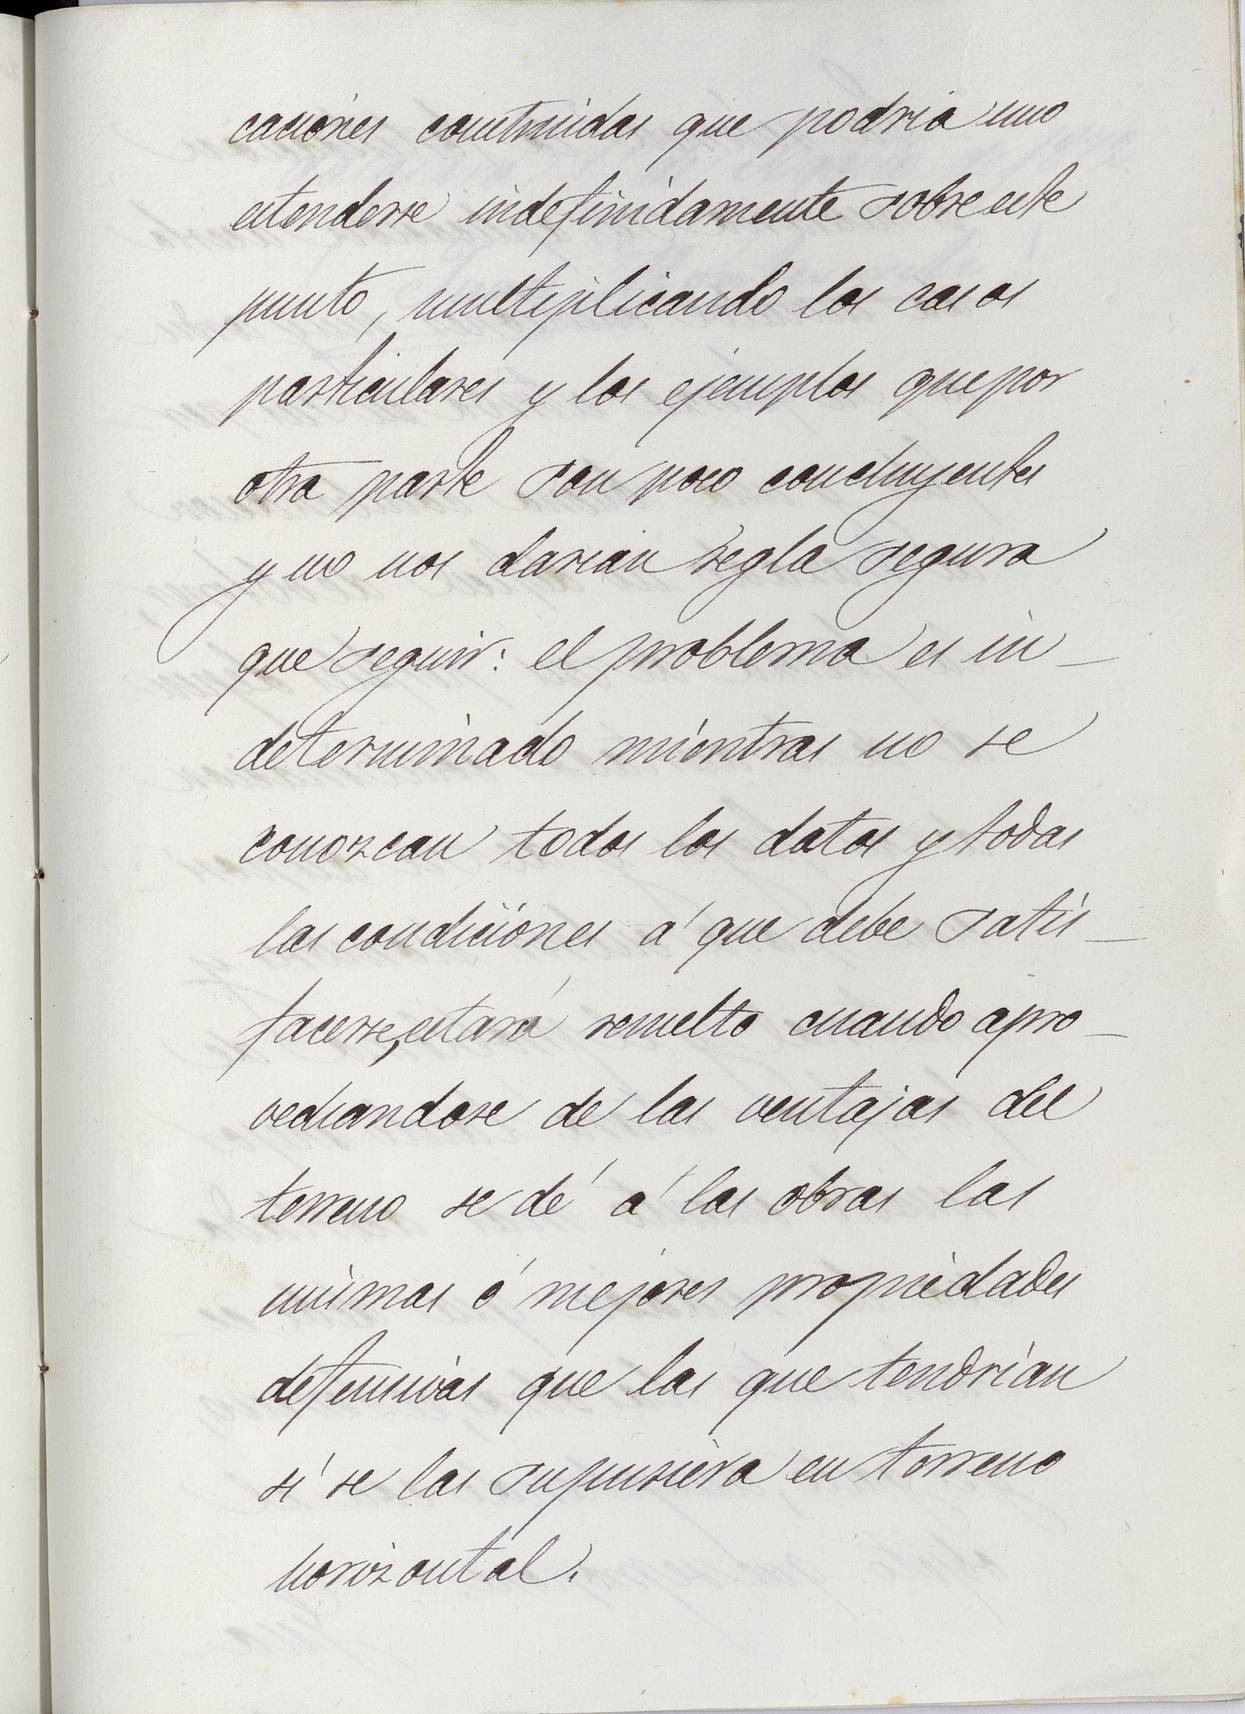 caciones construidas que podria uno
estenderse indefinidamente sobre este
punto, multiplicando los casos
particulares y los ejemplos que por
otra parte son poco concluyentes
y no nos darian regla segura
que seguir: el problema es in-
determinado mientras no se
conozcan todos los datos y todas
las condiciones á que debe satis-
facerse, estará resuelto cuando apro-
vechandose de las ventajas del
terreno se dé á las obras las
mismas ó mejores propiedades
defensivas que las que tendrian
si se las supusiera en terreno
horizontal.